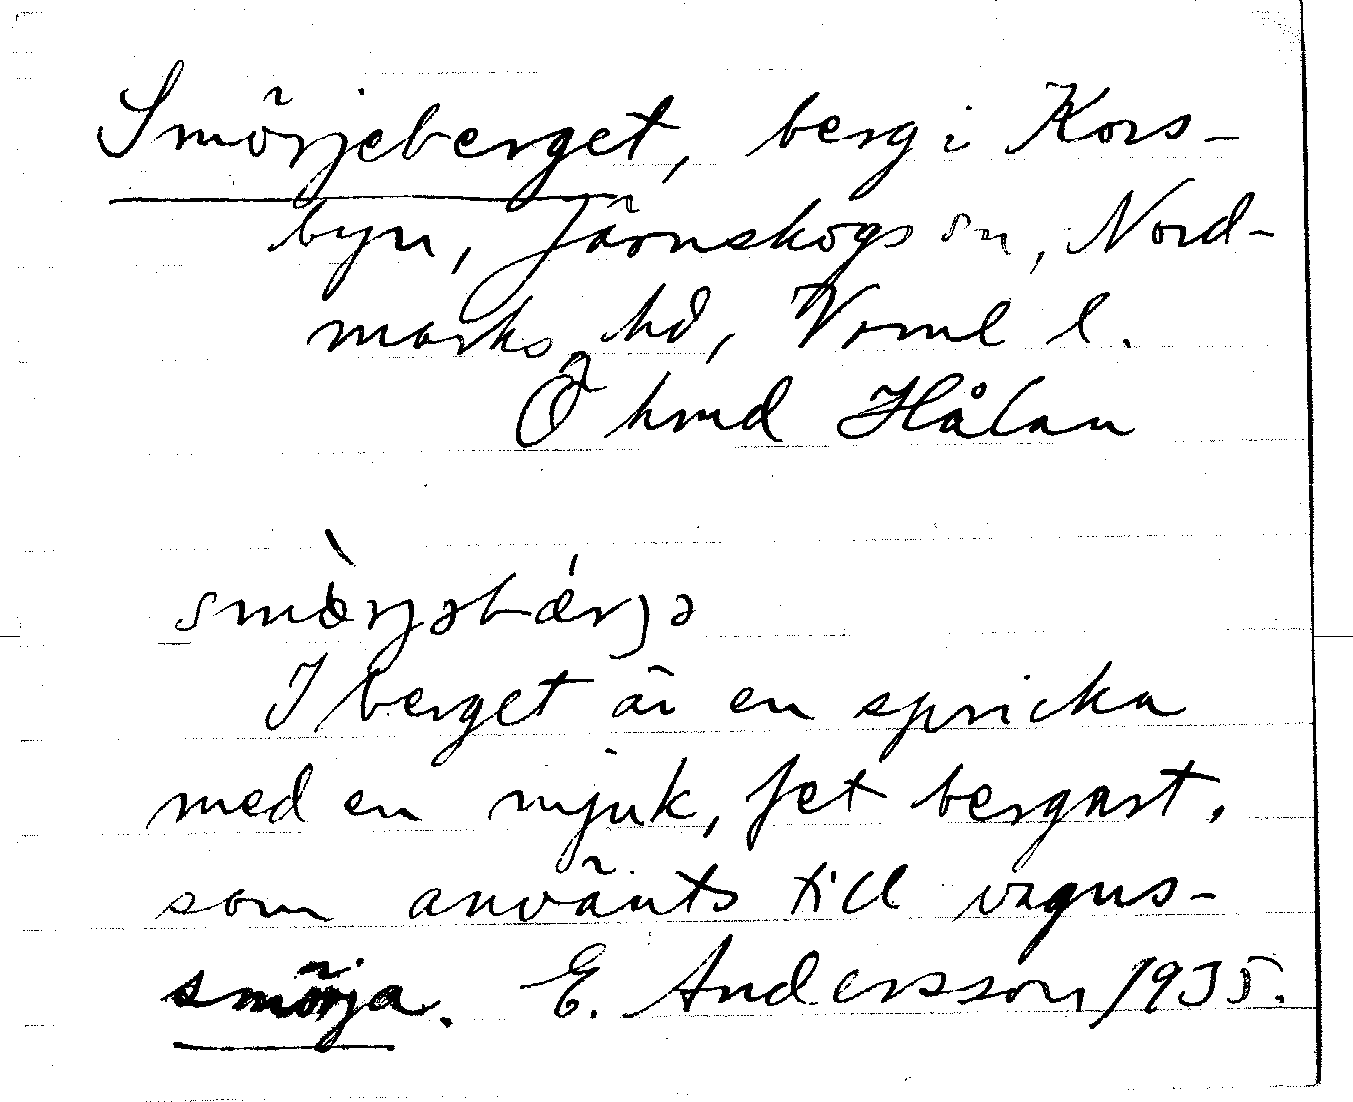 Smörjeberget, berg i Kors-
byn, Järnskogs sn, Nord-
marks hd, Vrml l.
Ö hmd Hålan
smæ̀rjəbǽrjə
I berget är en spricka
med en mjuk, fet bergart,
som använts till vagns-
smörja. E. Andersson 1935.